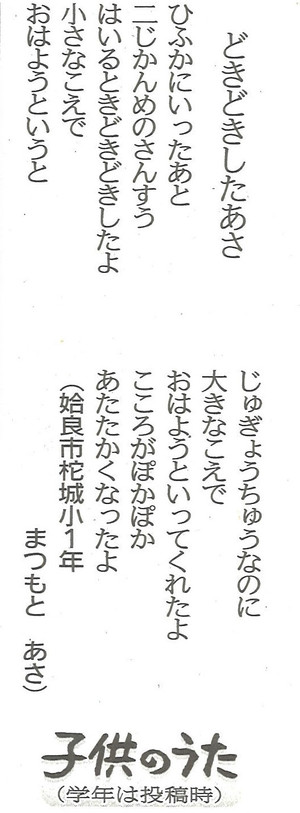 どきどきしたあさ
ひふかにいったあと
二じかんめのさんすう
はいるときどきどきしたよ
小さなこえで
おはようというと
じゅぎょうちゅうなのに
大きなこえで
おはようといってくれたよ
こころがぽかぽか
あたたかくなったよ
（姶良市柁城小１年
まつもと　あさ）
子供のうた
（学年は投稿時）